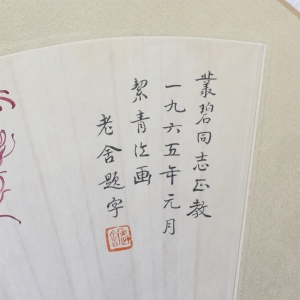 丛碧同志正教
一九六五年元月
絜青作画
老舍题字